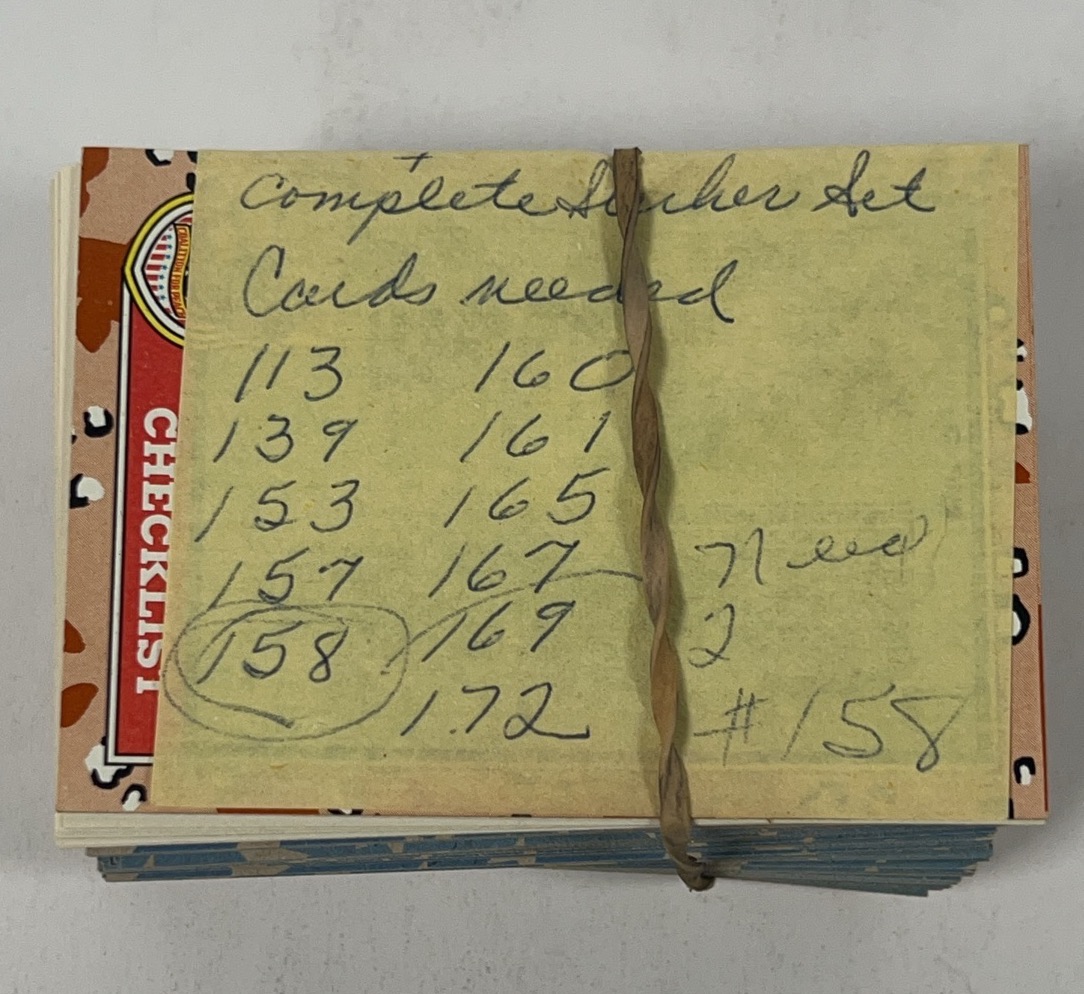 +
complete Sticker Set
Cards needed
113 160
139 161
153 165
157 167
158 169
172
Need
2
#158
CHECKLIST
COALITION FOR PEACE